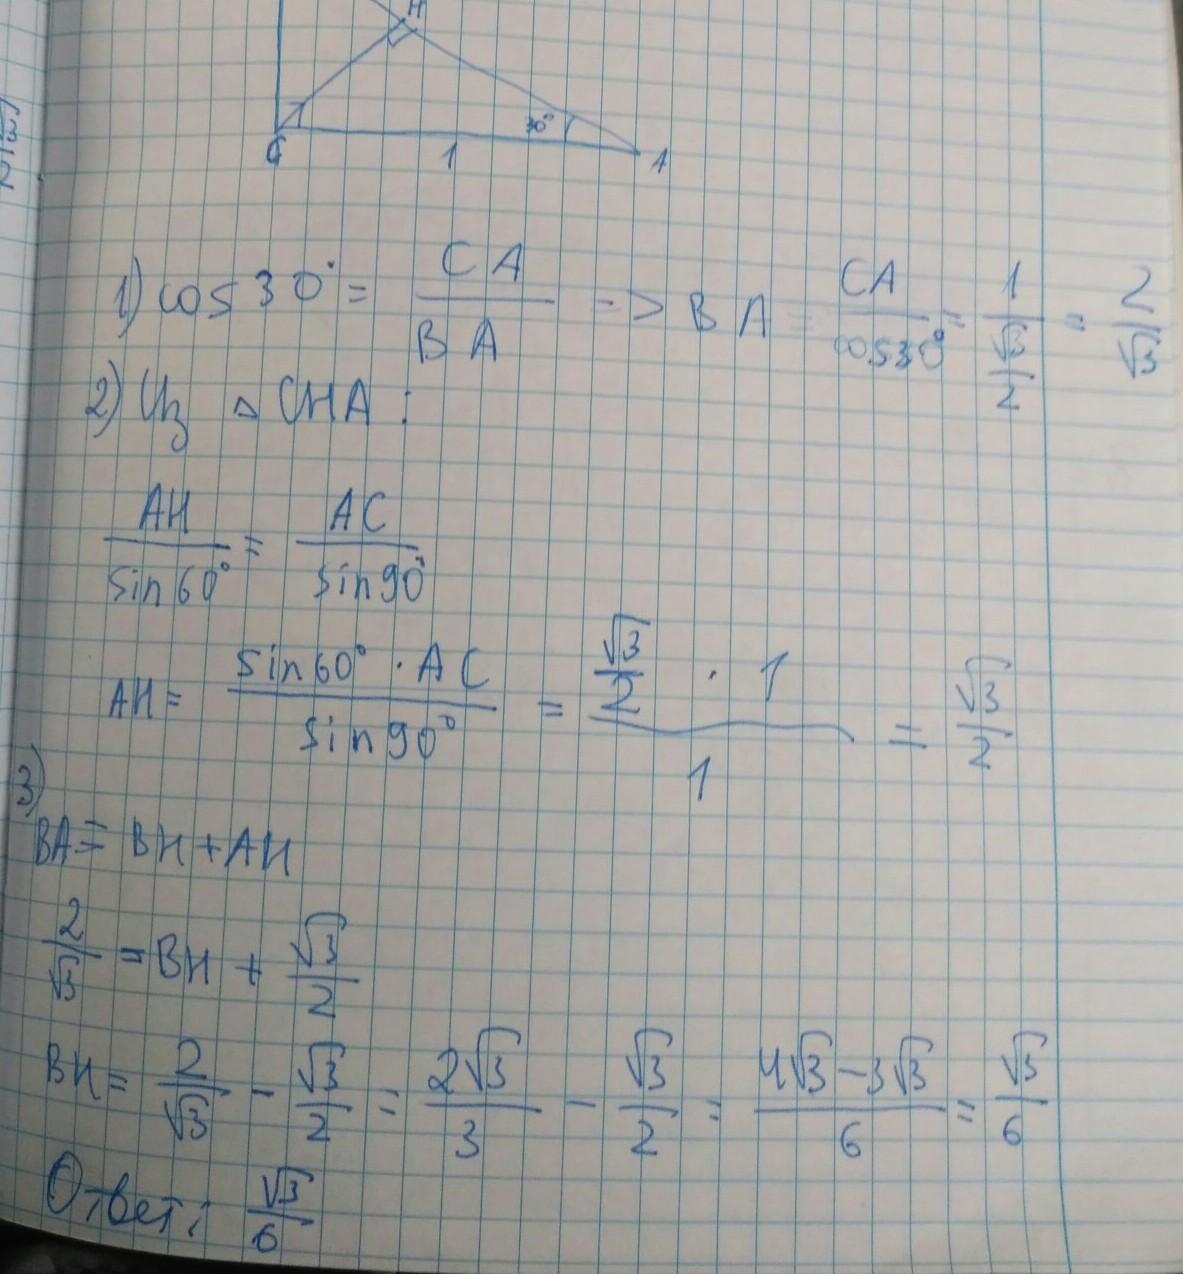 H
30°
C 1 A
1) cos30° = CA/BA => BA = CA/cos30° = 1/(√3/2) = 2/√3
2) Из △ CHA :
AH/sin60° = AC/sin90°
AH = (sin60° · AC)/sin90° = (√3/2 · 1)/1 = √3/2
3)
BA = BH + AH
2/√3 = BH + √3/2
BH = 2/√3 - √3/2 = 2√3/3 - √3/2 = (4√3 - 3√3)/6 = √3/6
Ответ: √3/6